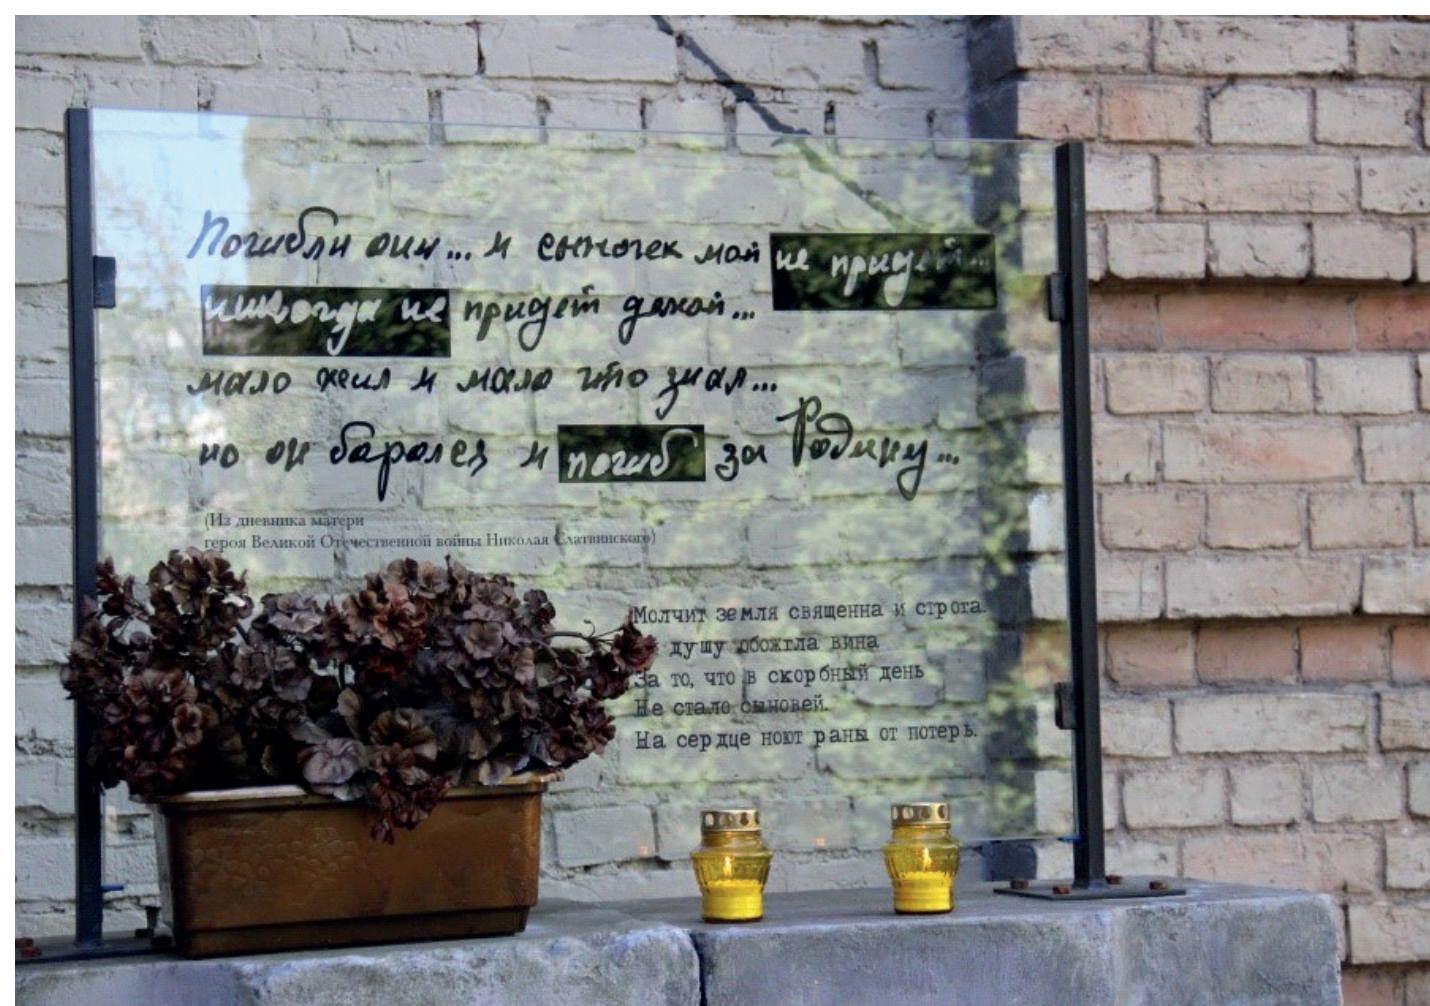 Погибли они... и сыночек мой не придет...
никогда не придет домой...
мало жил и мало что знал...
но он боролся и погиб за Родину...
(Из дневника матери
героя Великой Отечественной войны Николая Слатвинского)
Молчит земля священна и строга.
душу обожгла вина
За то, что в скорбный день
Не стало сыновей.
На сердце ноют раны от потерь.